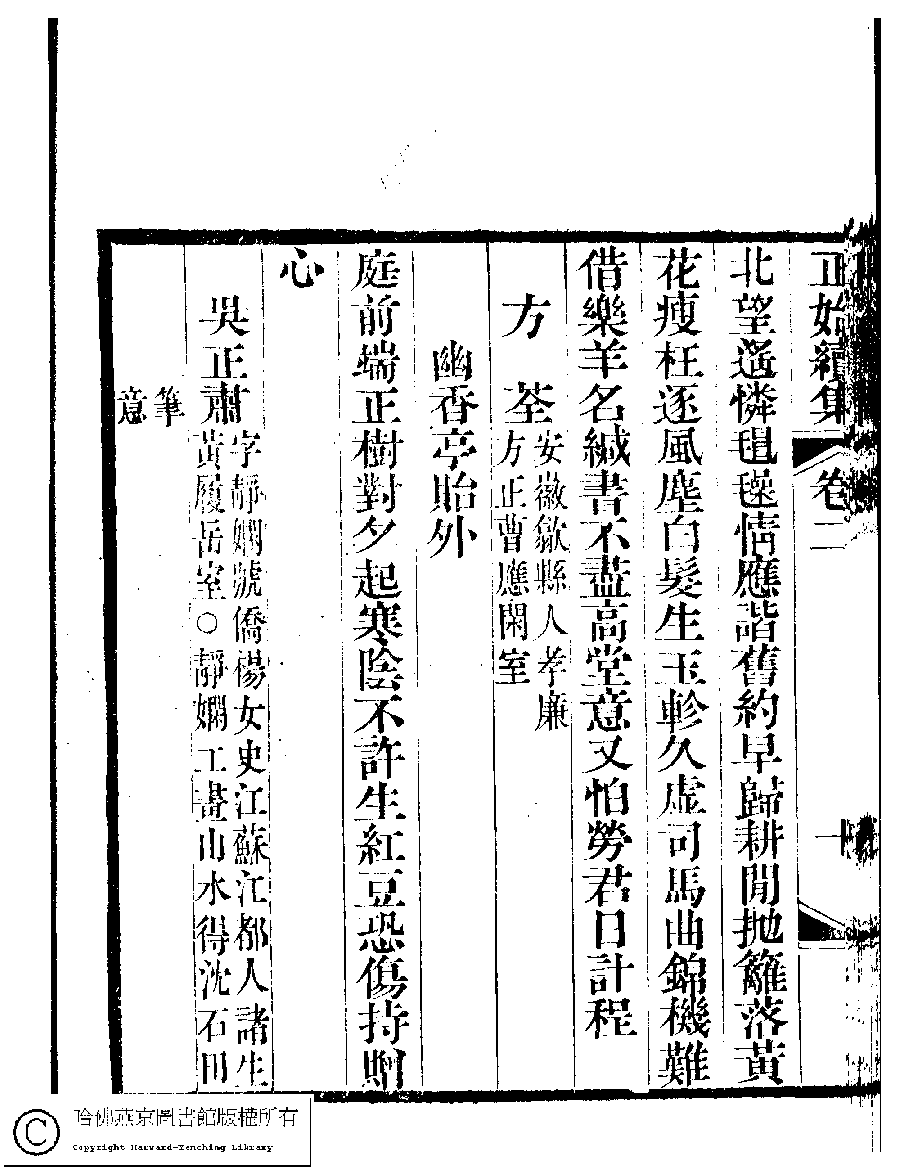 正始續集 卷二
北望遙憐氊毳情應諧舊約早歸耕閒拋籬落黃
花瘦枉逐風塵白髮生玉軫久虛司馬曲錦機難
借樂羊名緘書不盡高堂意又怕勞君日計程
方荃安徽歙縣人孝廉
方正曹應閑室
幽香亭貽外
庭前端正樹對夕起寒陰不許生紅豆恐傷持贈
心
吳正肅字靜嫻號僑楊女史江蘇江都人諸生
黃履岳室○靜嫻工畫山水得沈石田
筆
意
哈佛燕京圖書館版權所有
Copyright Harvard-Yenching Library